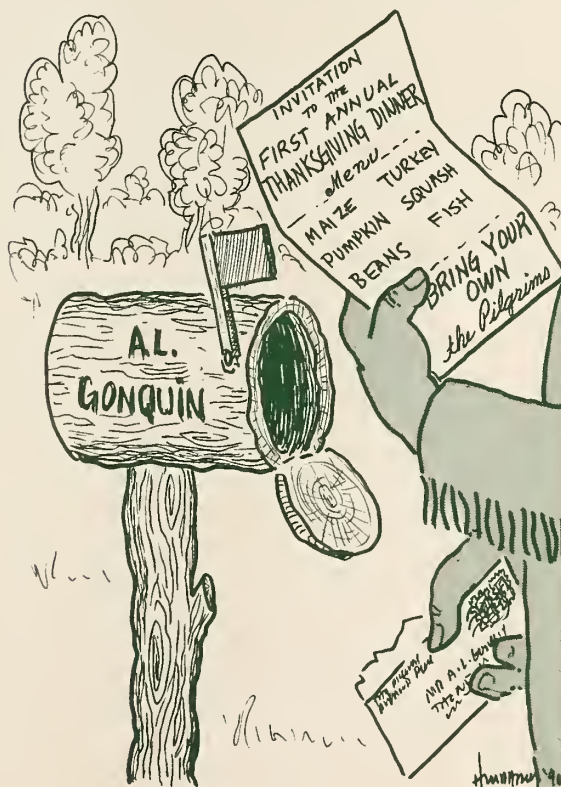 INVITATION
TO THE
FIRST ANNUAL
THANKSGIVING DINNER
Menu
MAIZE TURKEY
PUMPKIN SQUASH
BEANS FISH
BRING YOUR
OWN
the Pilgrims
A.L.
GONQUIN
MR A.L.